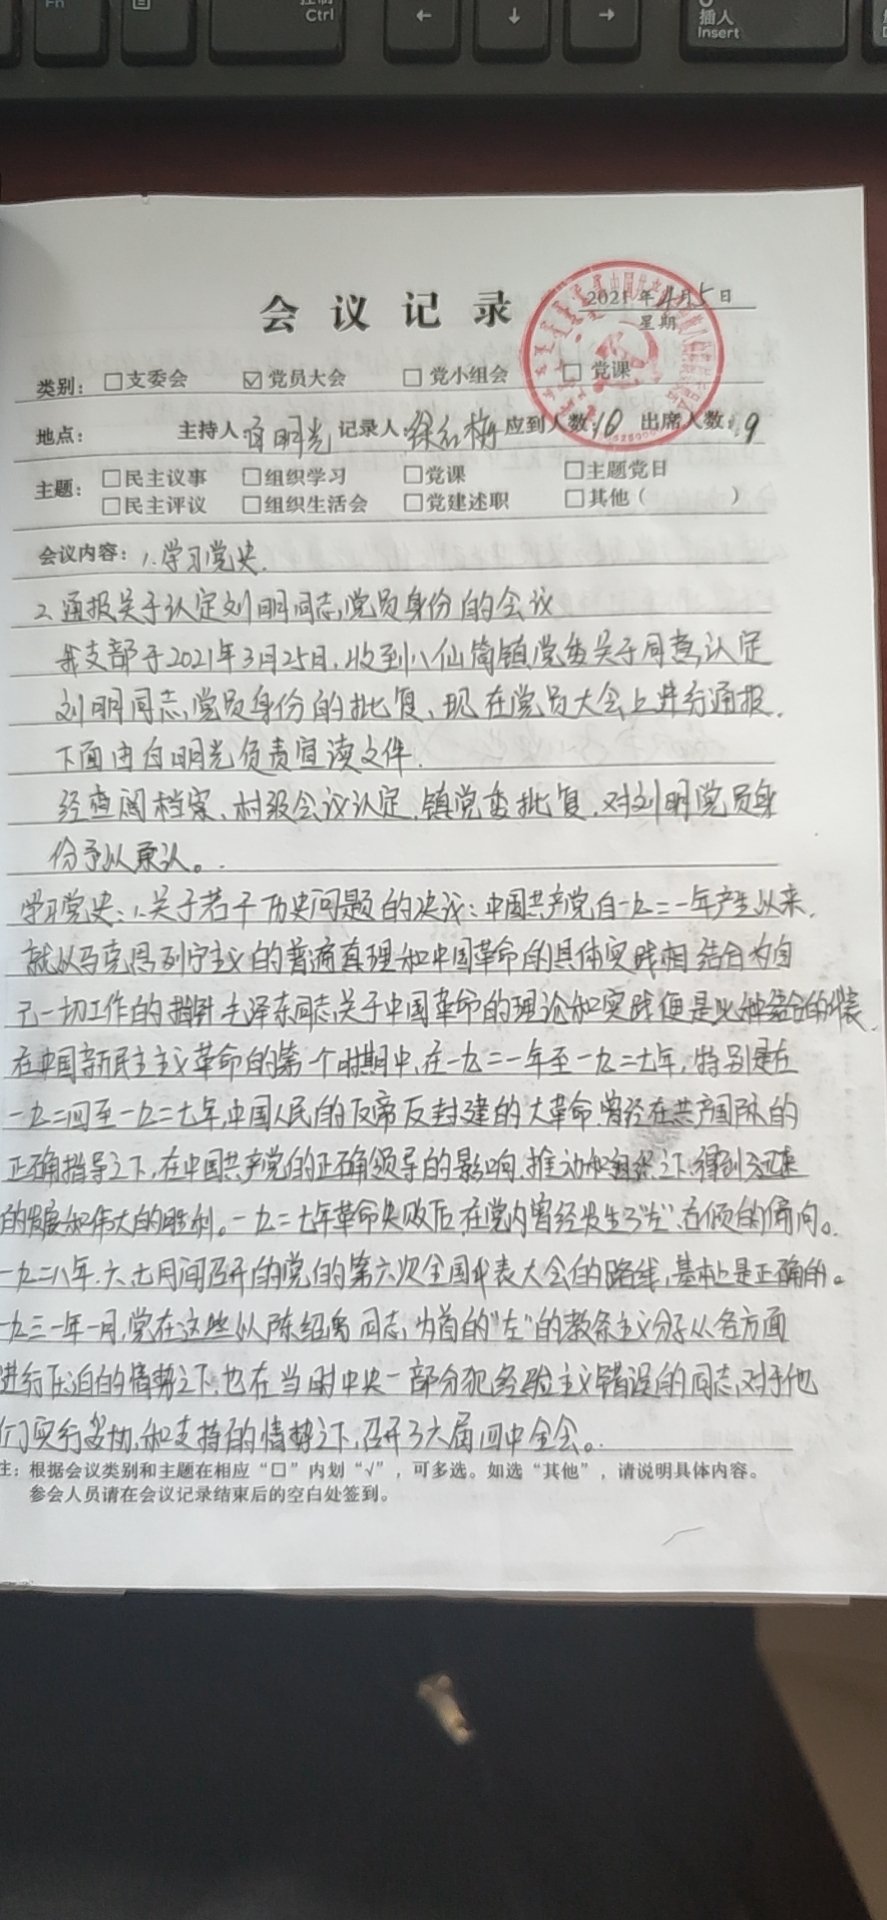 Fn
Ctrl
← ↓ →
插入
Insert
会议记录
2021年4月5日
星期
类别：□支委会 ☑党员大会 □党小组会 □党课
地点： 主持人 白明光 记录人：徐红梅 应到人数：10 出席人数：9
主题：□民主议事 □组织学习 □党课 □主题党日
□民主评议 □组织生活会 □党建述职 □其他（ ）
会议内容：1.学习党史.
2.通报关于认定刘明同志党员身份的会议
我支部于2021年3月25日，收到八仙筒镇党委关于同意认定
刘明同志党员身份的批复、现在党员大会上进行通报.
下面由白明光负责宣读文件.
经查阅档案、村级会议认定、镇党委批复、对刘明党员身
份予以承认。
学习党史：1.关于若干历史问题的决议：中国共产党自一九二一年产生以来,
就以马克思列宁主义的普遍真理和中国革命的具体实践相结合为自
己一切工作的指针 毛泽东同志关于中国革命的理论和实践便是此种结合的代表
在中国新民主主义革命的第一个时期中，在一九二一年至一九二七年，特别是在
一九二四至一九二七年，中国人民的反帝反封建的大革命，曾经在共产国际的
正确指导之下，在中国共产党的正确领导的影响、推动和组织之下，得到了迅速
的发展和伟大的胜利。一九二七年革命失败后，在党内曾经发生了"左"、右倾的偏向。
一九二八年、六、七月间召开的党的第六次全国代表大会的路线，基本上是正确的。
一九三一年一月，党在这些以陈绍禹同志为首的"左"的教条主义分子从各方面
进行压迫的情势之下，也在当时中央一部分犯经验主义错误的同志，对于他
们实行妥协和支持的情势之下，召开了六届四中全会。
注：根据会议类别和主题在相应“□”内划“√”，可多选。如选“其他”，请说明具体内容。
参会人员请在会议记录结束后的空白处签到。